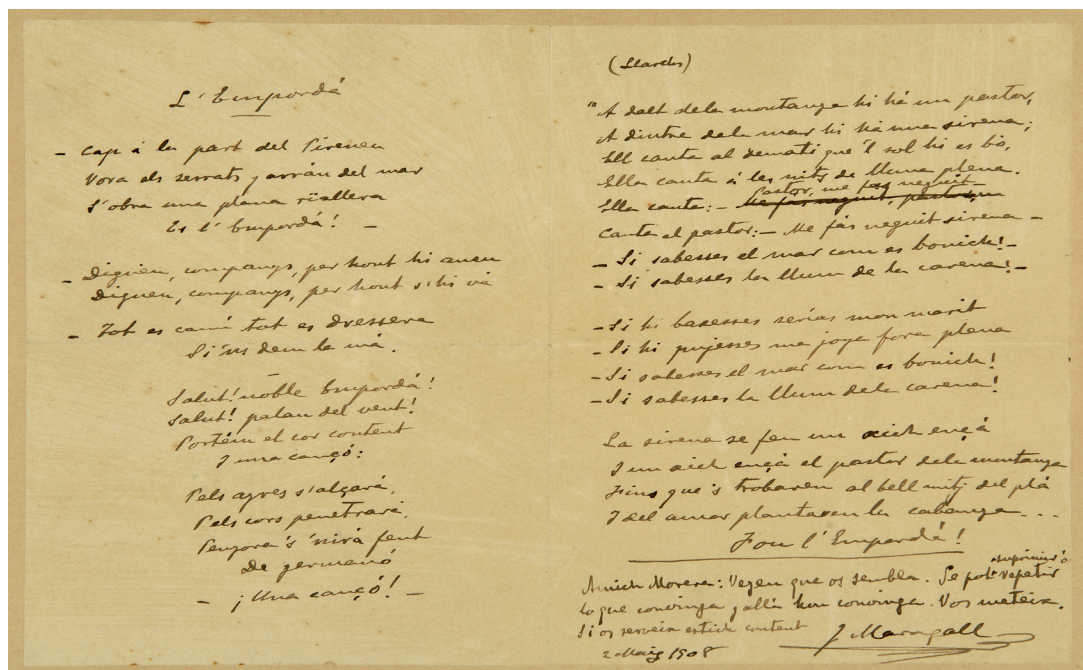 L'Empordá
– Cap á la part del Pireneu
Vora els serrats y arrán del mar
S'obra una plana riallera
Es l'Empordá! –
– Diguéu, companys, per hont hi aneu
Diguéu, companys, per hont s'hi vá
– Tot es camí tot es dressera
Si 'ns dem la má.
Salut! noble Empordá!
Salut! palau del vent!
Portém el cor content
I una cançó:
Pels ayres s'alçará,
Pels cors penetrará.
Penyora 's 'nirá fent
De germanó
– ¡Una cançó! –
(Llarch)
"A dalt dela montanya hi há un pastor,
A dintre dela mar hi há una sirena;
Ell canta al dematí que 'l sol hi es bó,
Ella canta á les nits de lluna plena.
Pastor, me fas neguit –
Ella canta: – Me fas neguit, pastor,
Canta el pastor: – Me fas neguit sirena –
– Si sabesses el mar com es bonich! –
– Si sabesses la llum de la carena! –
– Si hi baxesses serías mon marit
– Si hi pujesses ma joya fora plena
– Si sabesses el mar com es bonich!
– Si sabesses la llum dela carena!
La sirena se feu un xich ençá
I un xich ençá el pastor dela montanya
Fins que 's trobaren al bell mitj del plá
I del amor plantaren la cabanya...
Fou l'Empordá!
suprimir ó
Amich Morera: Vegeu que os sembla. Se pot repetir
lo que convinga y allá hon convinga. Vos meteix.
Si os serveix estich content
J Maragall
2 Maig 1908